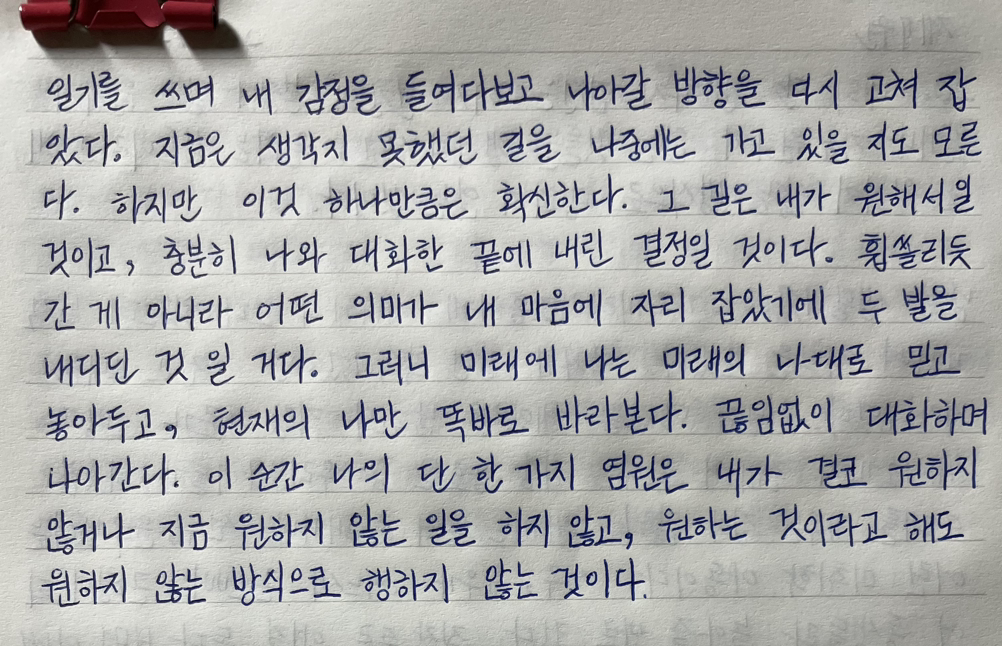 일기를 쓰며 내 감정을 들여다보고 나아갈 방향을 다시 고쳐 잡
았다. 지금은 생각지 못했던 길을 나중에는 가고 있을 지도 모른
다. 하지만 이것 하나만큼은 확신한다. 그 길은 내가 원해서일
것이고, 충분히 나와 대화한 끝에 내린 결정일 것이다. 휩쓸리듯
간 게 아니라 어떤 의미가 내 마음에 자리 잡았기에 두 발을
내디딘 것 일 거다. 그러니 미래에 나는 미래의 나대로 믿고
놓아두고, 현재의 나만 똑바로 바라본다. 끊임없이 대화하며
나아간다. 이 순간 나의 단 한 가지 염원은 내가 결코 원하지
않거나 지금 원하지 않는 일을 하지 않고, 원하는 것이라고 해도
원하지 않는 방식으로 행하지 않는 것이다.